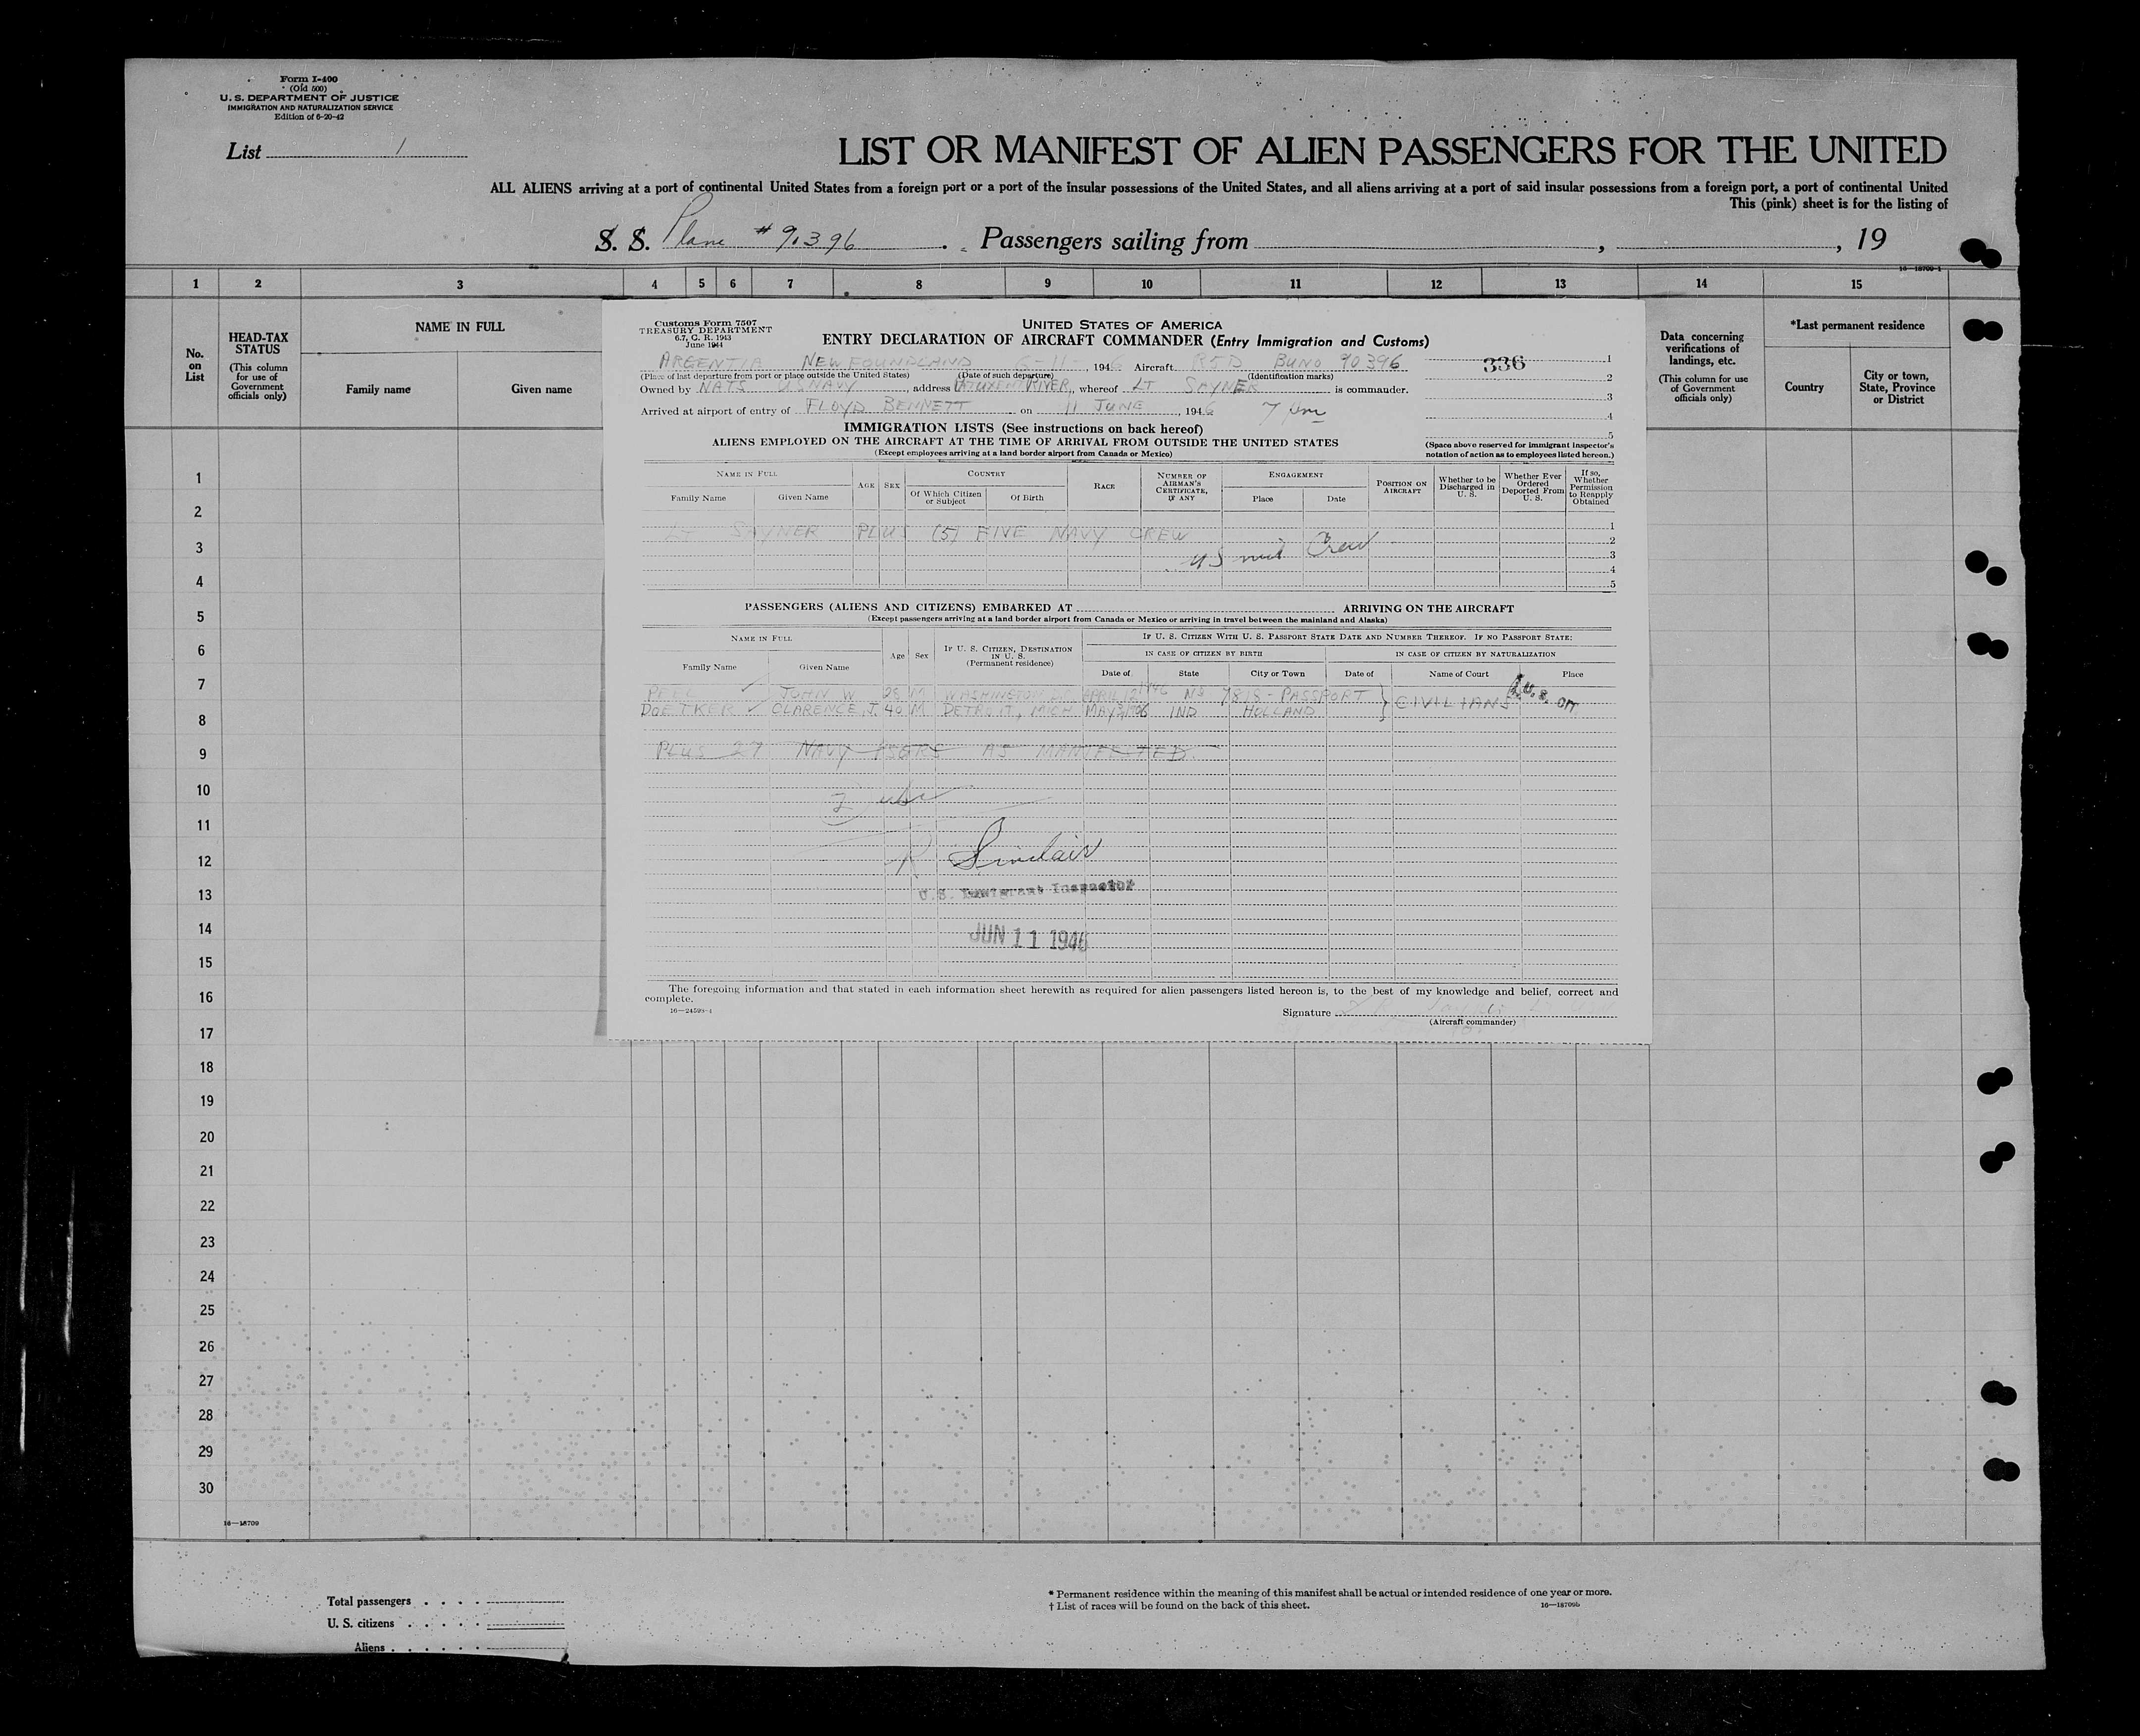 Form I-400
(Old 500)
U. S. DEPARTMENT OF JUSTICE
IMMIGRATION AND NATURALIZATION SERVICE
Edition of 6-20-42
List 1
LIST OR MANIFEST OF ALIEN PASSENGERS FOR THE UNITED
ALL ALIENS arriving at a port of continental United States from a foreign port or a port of the insular possessions of the United States, and all aliens arriving at a port of said insular possessions from a foreign port, a port of continental United
This (pink) sheet is for the listing of
S. S. Plane # 9.396 Passengers sailing from , , 19
16—18709-1
1 2 3 4 5 6 7 8 9 10 11 12 13 14 15
No. on List
HEAD-TAX STATUS
(This column for use of Government officials only)
NAME IN FULL
Family name Given name
Data concerning verifications of landings, etc.
(This column for use of Government officials only)
*Last permanent residence
Country
City or town, State, Province or District
Customs Form 7507
TREASURY DEPARTMENT
6.7, C. R. 1943
June 1944
UNITED STATES OF AMERICA
ENTRY DECLARATION OF AIRCRAFT COMMANDER (Entry Immigration and Customs)
ARGENTIA NEWFOUNDLAND 6-11- , 1946 Aircraft R5D BUNO 90396
336
(Place of last departure from port or place outside the United States) (Date of such departure) (Identification marks)
Owned by NATS USNAVY , address PATUXENT RIVER, whereof LT SAYNER is commander.
Arrived at airport of entry of FLOYD BENNETT on 11 JUNE , 1946 7 pm
1
2
3
4
5
IMMIGRATION LISTS (See instructions on back hereof)
ALIENS EMPLOYED ON THE AIRCRAFT AT THE TIME OF ARRIVAL FROM OUTSIDE THE UNITED STATES
(Except employees arriving at a land border airport from Canada or Mexico)
(Space above reserved for immigrant inspector's notation of action as to employees listed hereon.)
NAME IN FULL
Family Name Given Name
AGE SEX
COUNTRY
Of Which Citizen or Subject Of Birth
RACE
NUMBER OF AIRMAN'S CERTIFICATE, IF ANY
ENGAGEMENT
Place Date
POSITION ON AIRCRAFT
Whether to be Discharged in U. S.
Whether Ever Ordered Deported From U. S.
If so, Whether Permission to Reapply Obtained
LT SAYNER PLUS (5) FIVE NAVY CREW
US Crew
1
2
3
4
5
PASSENGERS (ALIENS AND CITIZENS) EMBARKED AT ARRIVING ON THE AIRCRAFT
(Except passengers arriving at a land border airport from Canada or Mexico or arriving in travel between the mainland and Alaska)
NAME IN FULL
Family Name Given Name
Age Sex
IF U. S. CITIZEN, DESTINATION IN U. S. (Permanent residence)
IF U. S. CITIZEN WITH U. S. PASSPORT STATE DATE AND NUMBER THEREOF. IF NO PASSPORT STATE:
IN CASE OF CITIZEN BY BIRTH IN CASE OF CITIZEN BY NATURALIZATION
Date of State City or Town Date of Name of Court Place
PEEL JOHN W 28 M WASHINGTON D.C. APRIL 12 1946 No 7818 - PASSPORT } CIVILIANS
DOETKER CLARENCE J. 40 M DETROIT, MICH MAY 3, 1906 IND HOLLAND
PLUS 27 NAVY PSGRS AS MANIFESTED.
R Sinclair
U. S. Immigrant Inspector
JUN 11 1946
The foregoing information and that stated in each information sheet herewith as required for alien passengers listed hereon is, to the best of my knowledge and belief, correct and
complete.
16—24598-1
Signature
(Aircraft commander)
1
2
3
4
5
6
7
8
9
10
11
12
13
14
15
16
17
18
19
20
21
22
23
24
25
26
27
28
29
30
16—18709
Total passengers
U. S. citizens
Aliens
* Permanent residence within the meaning of this manifest shall be actual or intended residence of one year or more.
† List of races will be found on the back of this sheet.
16—18709b